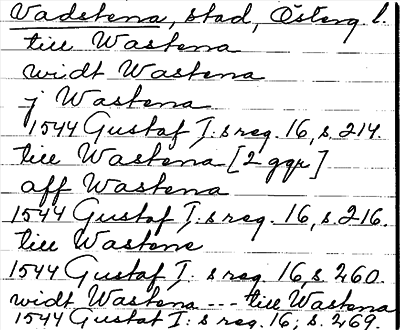 Vadstena, stad, Österg l.
till Wastena
widt Wastena
j Wastena
1544 Gustaf I:s reg. 16, s. 214.
till Wastena [2 ggr]
aff Wastena
1544 Gustaf I:s reg. 16, s. 216.
till Wastene
1544 Gustaf I:s reg. 16, s. 260.
widt Wastena --- till Wastena
1544 Gustaf I:s reg. 16, s. 269.